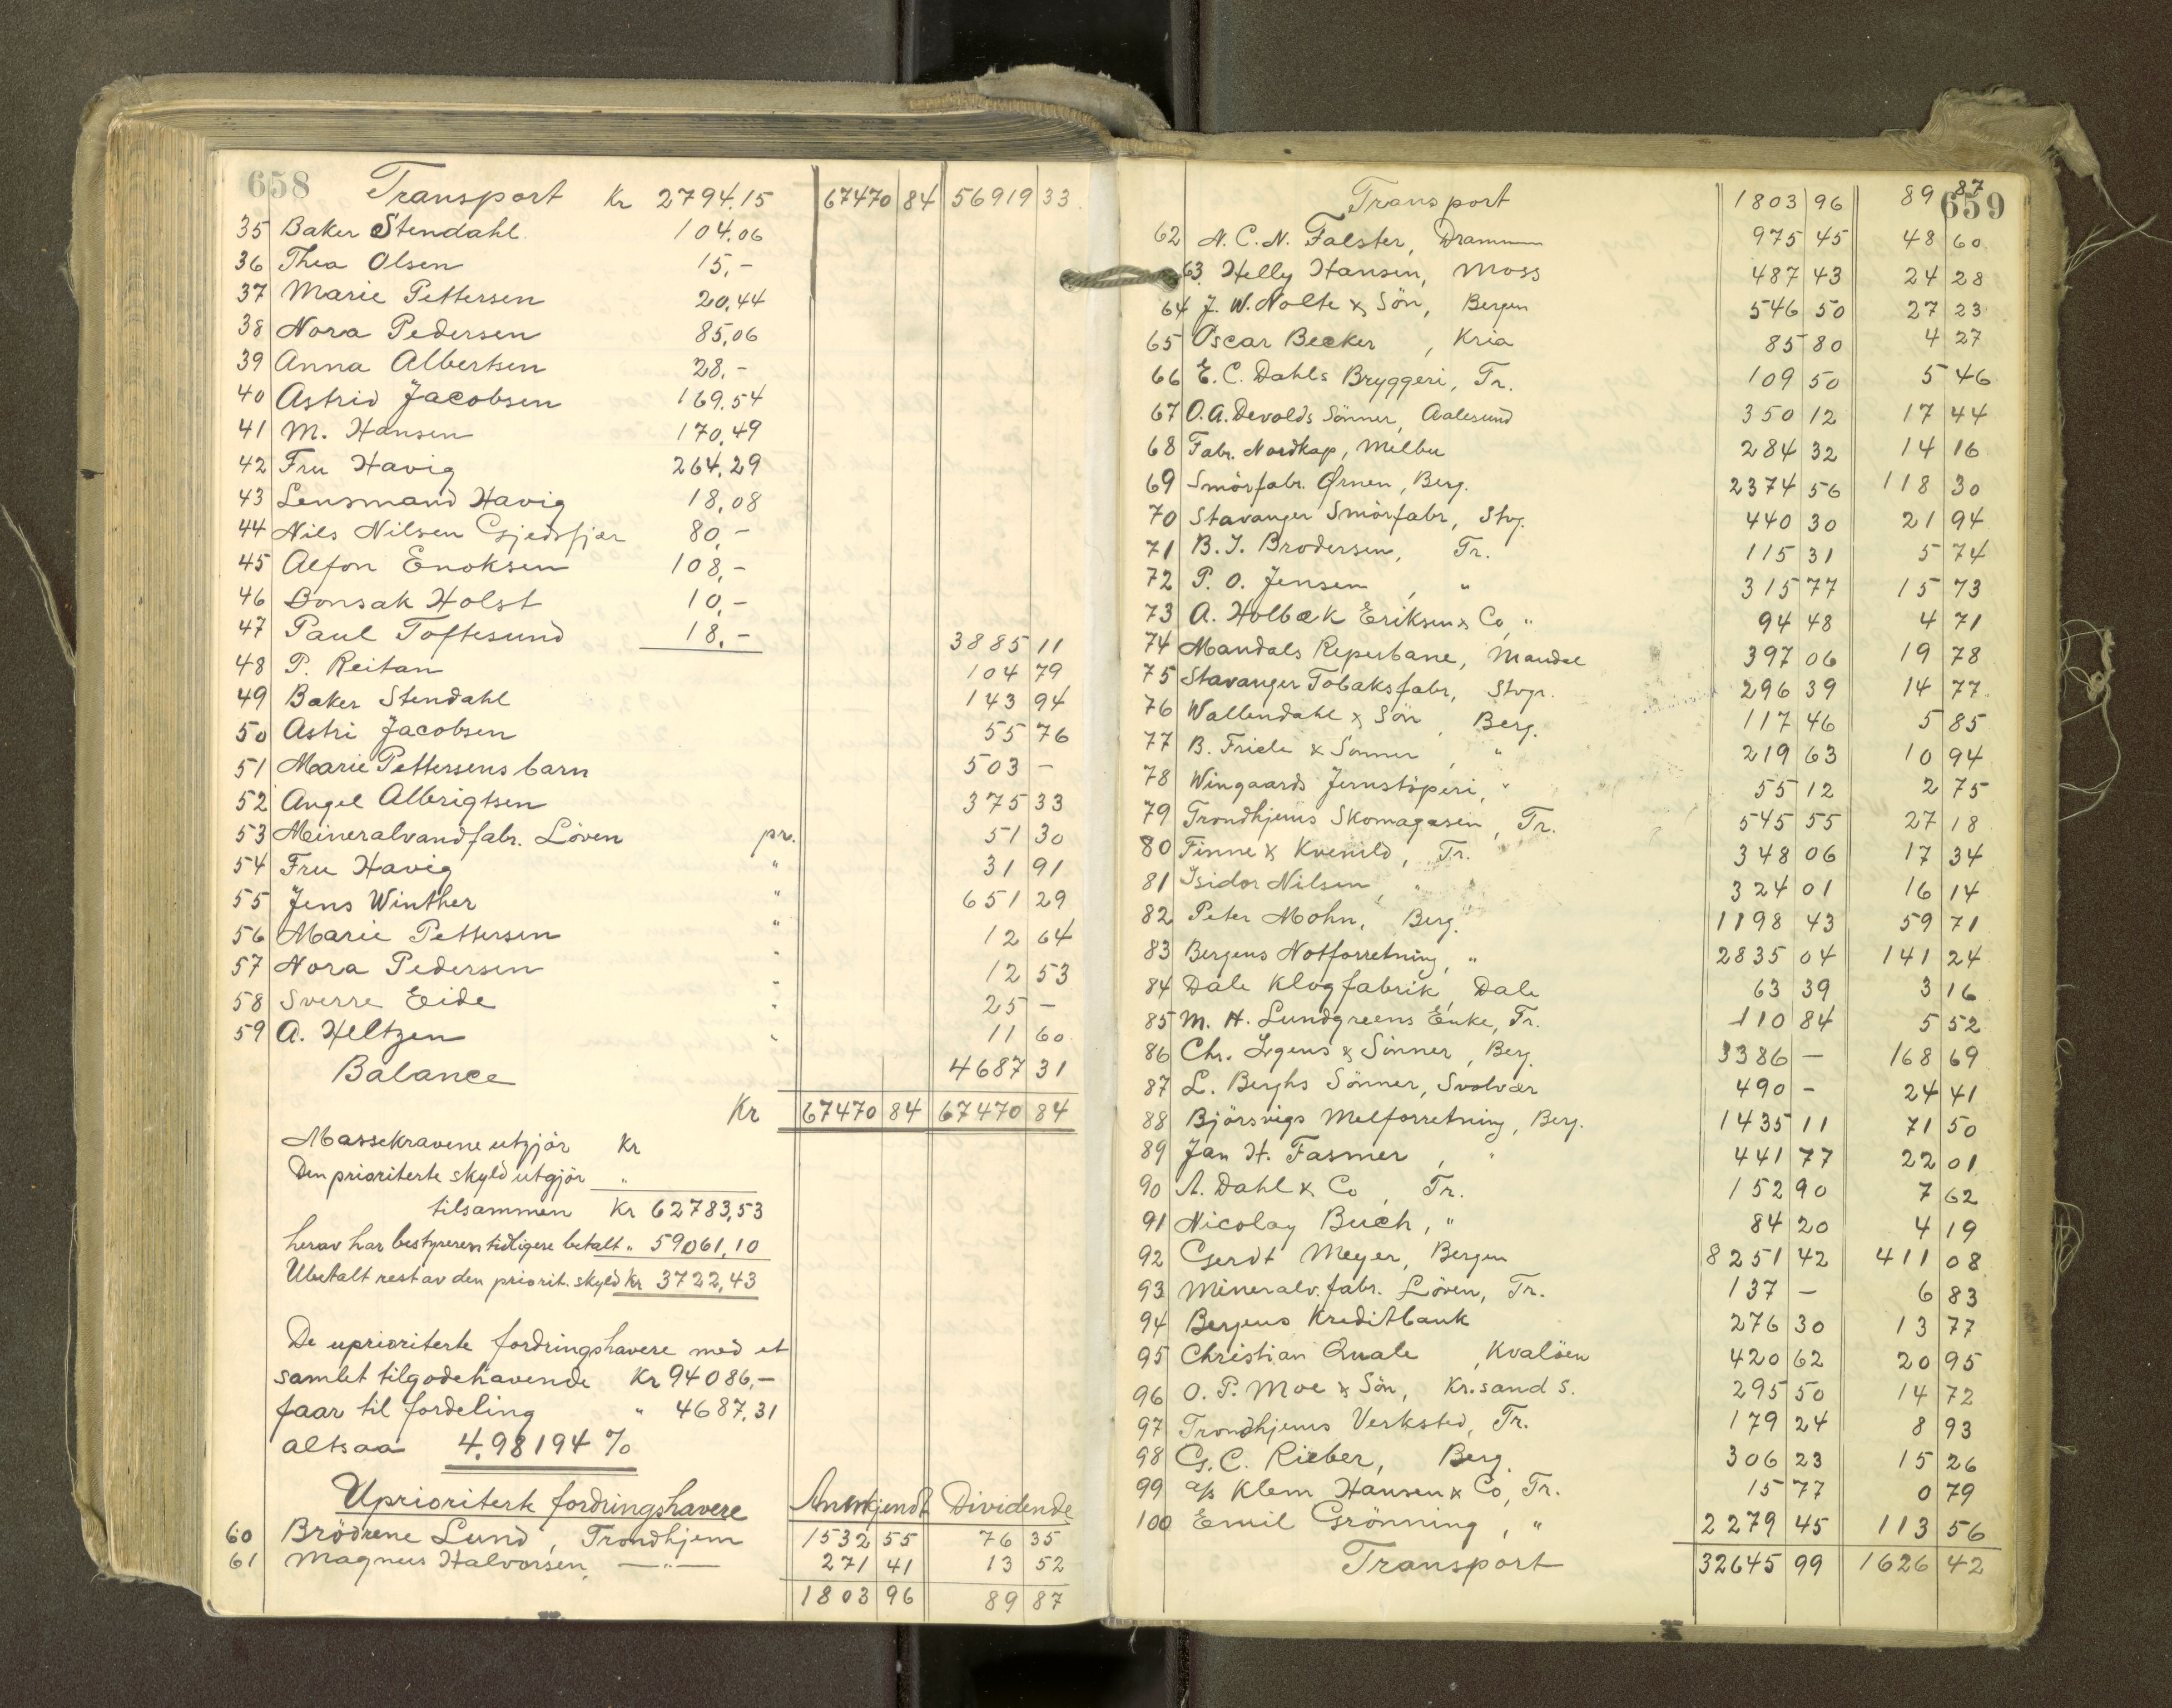 658 Transport Kr 2794.15 67470 84 56919 33
35 Baker Stendahl 104.06
36 Thea Olsen 15,-
37 Marie Pettersen 20,44
38 Nora Pedersen 85,06
39 Anna Albertsen 28,-
40 Astrid Jacobsen 169.54
41 M. Hansen 170,49
42 Fru Havig 264,29
43 Lensmand Havig 18,08
44 Nils Nilsen Gjedsfjær 80,-
45 Alfon Enoksen 108,-
46 Bonsak Holst 10,-
47 Paul Toftesund 18,- 3885 11
48 P. Reitan 104 79
49 Baker Stendahl 143 94
50 Astri Jacobsen 55 76
51 Marie Pettersens barn 503 -
52 Angel Albrigtsen 375 33
53 Mineralvandfabr. Löven pr. 51 30
54 Fru Havig " 31 91
55 Jens Winther " 651 29
56 Marie Pettersen " 12 64
57 Nora Pedersen " 12 53
58 Sverre Eide " 25 -
59 A. Heltzen " 11 60
Balance 4687 31
Kr 67470 84 67470 84
Massekravene utgjör Kr
Den prioriterte skyld utgjör "
tilsammen Kr 62783,53
herav har bestyreren tidligere betalt " 59061,10
Ubetalt rest av den priorit. skyld Kr 3722,43
De uprioriterte fordringshavere med et
samlet tilgodehavende Kr 94086,-
faar til fordeling " 4687,31
altsaa 4,98194 %
Uprioriterte fordringshavere Anerkjendt Dividende
60 Brödrene Lund, Trondhjem 1532 55 76 35
61 Magnus Halvorsen, —"— 271 41 13 52
1803 96 89 87
659
Transport 1803 96 89 87
62 N. C. N. Falster, Drammen 975 45 48 60
63 Helly Hansen, Moss 487 43 24 28
64 J. W. Nolte & Sön, Bergen 546 50 27 23
65 Oscar Becker, Kria 85 80 4 27
66 E. C. Dahls Bryggeri, Tr. 109 50 5 46
67 O. A. Devolds Sönner, Aalesund 350 12 17 44
68 Fabr. Nordkap, Melbu 284 32 14 16
69 Smörfabr. Ørnen, Berg. 2374 56 118 30
70 Stavanger Smörfabr, Stvg. 440 30 21 94
71 B. I. Brodersen, Tr. 115 31 5 74
72 P. O. Jensen, " 315 77 15 73
73 A. Holbæk Eriksen & Co, " 94 48 4 71
74 Mandals Reperbane, Mandal 397 06 19 78
75 Stavanger Tobaksfabr, Stvgr. 296 39 14 77
76 Wallendahl & Sön, Berg. 117 46 5 85
77 B. Friele & Sönner, " 219 63 10 94
78 Wingaards Jernstöperi, " 55 12 2 75
79 Trondhjems Skomagasin, Tr. 545 55 27 18
80 Finne & Kvenild, Tr. 348 06 17 34
81 Isidor Nilsen, " 324 01 16 14
82 Peter Mohn, Berg. 1198 43 59 71
83 Bergens Notforretning, " 2835 04 141 24
84 Dale Klogfabrik, Dale 63 39 3 16
85 M. H. Lundgreens Enke, Tr. 110 84 5 52
86 Chr. Irgens & Sönner, Berg. 3386 - 168 69
87 L. Berghs Sönner, Svolvær 490 - 24 41
88 Björsvigs Melforretning, Berg. 1435 11 71 50
89 Jan H. Fasmer, " 441 77 22 01
90 A. Dahl & Co, Tr. 152 90 7 62
91 Nicolay Buch, " 84 20 4 19
92 Gerdt Meyer, Bergen 8251 42 411 08
93 Mineralv. fabr. Löven, Tr. 137 - 6 83
94 Bergens Kreditbank 276 30 13 77
95 Christian Quale, Kvalöen 420 62 20 95
96 O. P. Moe & Sön, Kr.sand S. 295 50 14 72
97 Trondhjems Verksted, Tr. 179 24 8 93
98 G. C. Rieber, Berg. 306 23 15 26
99 a/s Klem Hansen & Co, Tr. 15 77 0 79
100 Emil Grönning, " 2279 45 113 56
Transport 32645 99 1626 42